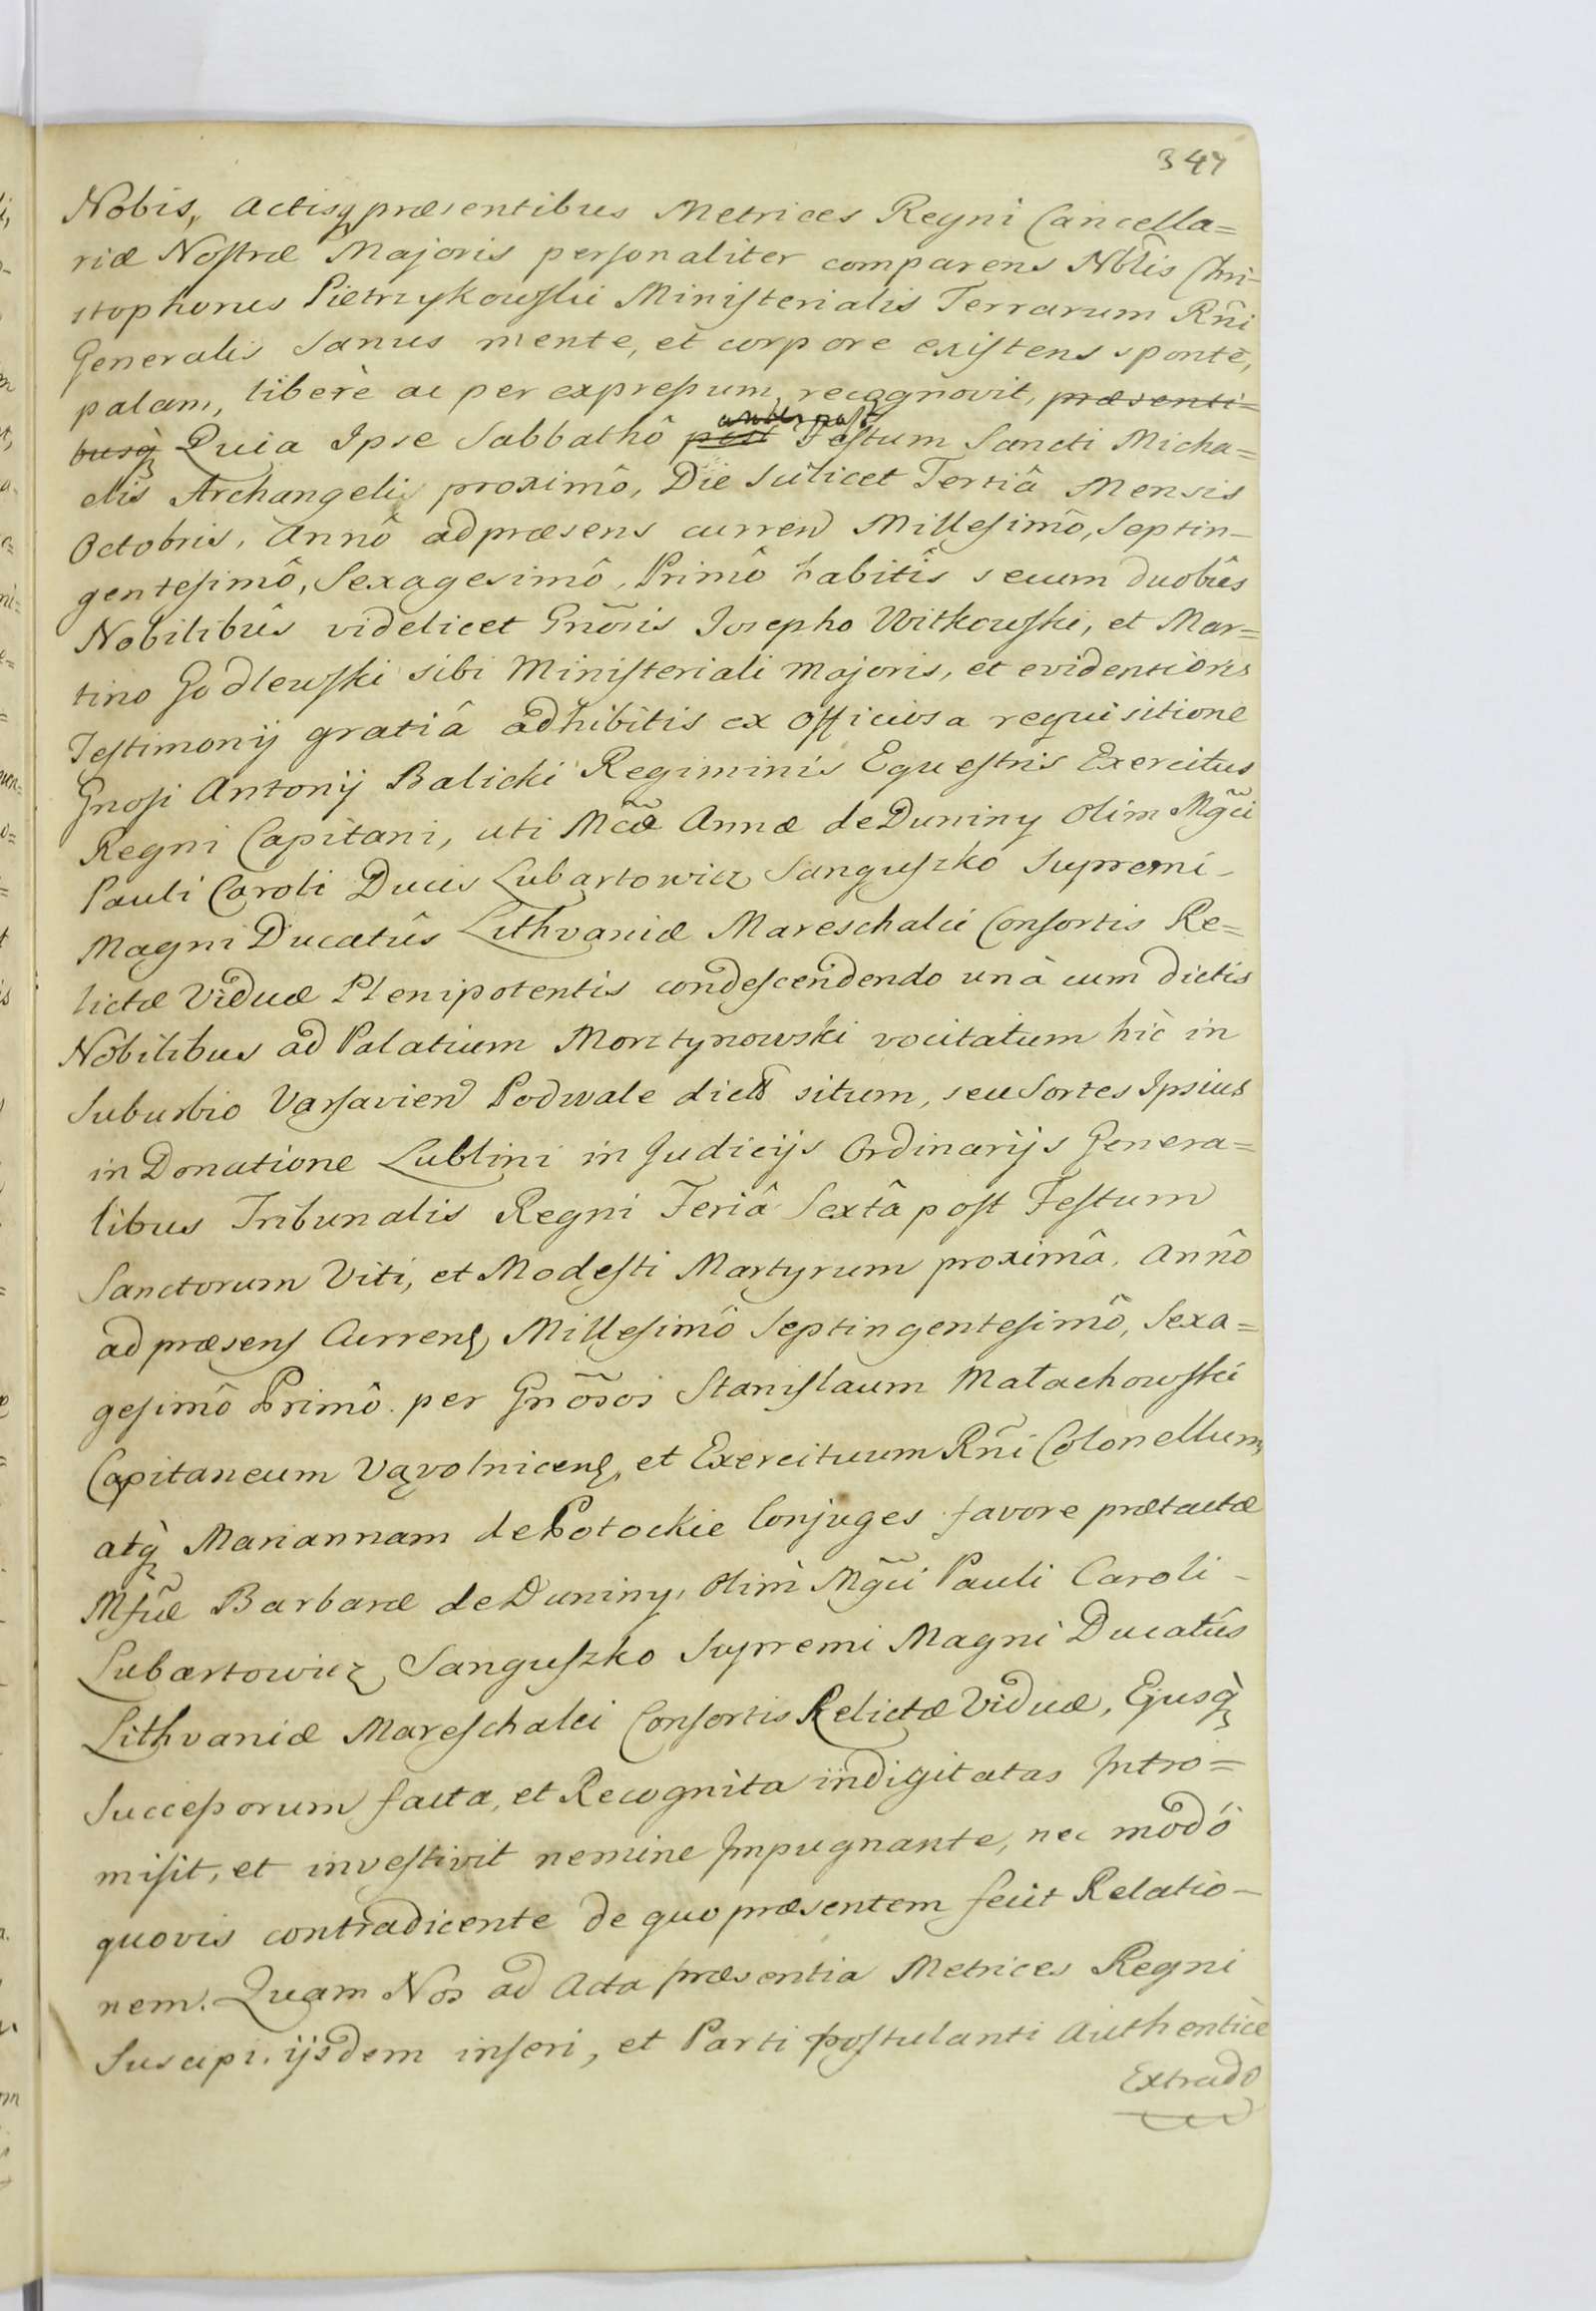 347
Nobis, Actisq præsentibus Metrices Regni Cancella=
riæ Nostræ Majoris personaliter comparens Nblis Chri-
stophorus Pietrzykowski Ministerialis Terrarum Rñi
Generalis Sanus mente, et corpore existens sponte,
palam, liberè ac per expressum recognovit, præsenti=
busq̀ Quia Ipse Sabbathô post Festum Sancti Micha=
elis Archangelis proximô, Die Scilicet Tertiâ Mensis
Octobris, Annô ad præsens curren Millesimô, Septin-
gentesimô, Sexagesimô, Primô habitîs secum duobûs
Nobilibûs videlicet Gnõsis Josepho Witkowski, et Mar=
tino Godlewski sibi Ministeriali Majoris, et evidentioris
Testimonij gratiâ adhibitis ex officiosa requisitione
Gnosi Antonij Balicki Regiminis Equestris Exercitus
Regni Capitani, uti Mcæ̃ Annæ de Duniny Olim Mgci
Pauli Caroli Ducis Lubartowicz Sanguszko Supremi-
Magni Ducatûs Lithvaniæ Mareschalci Consortis Re=
lictæ Viduæ Plenipotentis condescendendo unà cum dictis
Nobilibus ad Palatium Morztynowski vocitatum hìc in
Suburbio Varsavien Podwale dict situm, seu Sortes Ipsius
in Donatione Lublini in Judicijs Ordinarijs Genera=
libus Tribunalis Regni Feriâ Sextâ post Festum
Sanctorum Viti, et Modesti Martyrum proximâ. Annô
ad præsens Currens Millesimô Septingentesimô, Sexa=
gesimô Primô. per Gnõsos Stanislaum Małachowski
Capitaneum Vąvolnicens, et Exercituum Rñi Colonellum,
atq̀ Mariannam de Potockie Conjuges favore prætactæ
Barbaræ de Duniny, Olim Mgci Pauli Caroli-
Lubartowicz Sanguszko Supremi Magni Ducatûs
Lithvaniæ Mareschalci Consortis Relictæ Viduæ, Ejusq̀
Successorum facta, et Recognita indigitatas Intro=
misit, et investivit nemine Impugnante, nec modô
quovis contradicente de quo præsentem fecit Relatio-
nem. Quam Nos ad Acta præsentia Metrices Regni
Suscipi. ijsdem inseri, et Parti postulanti Authenticè
Extrado